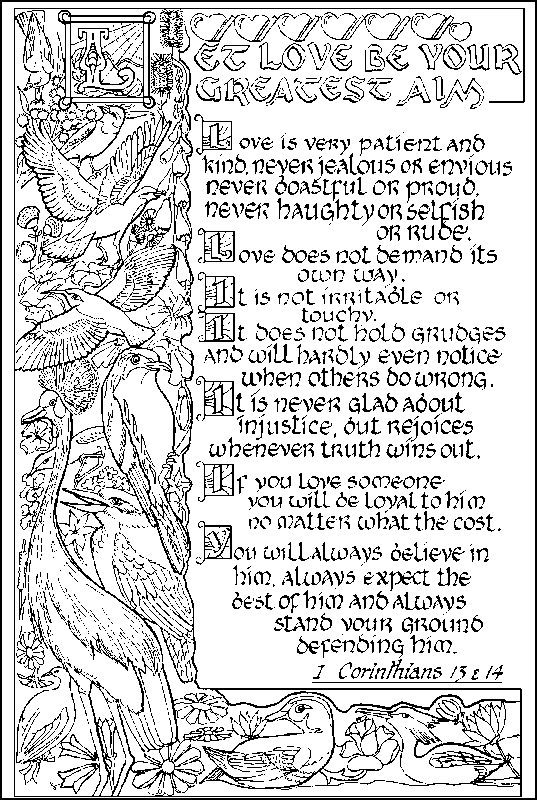 LET LOVE BE YOUR
GREATEST AIM
Love is very patient and
kind, never jealous or envious
never boastful or proud,
never haughty or selfish
or rude.
Love does not demand its
own way.
It is not irritable or
touchy.
It does not hold grudges
and will hardly even notice
when others do wrong.
It is never glad about
injustice, but rejoices
whenever truth wins out.
If you love someone
you will be loyal to him
no matter what the cost.
You will always believe in
him, always expect the
best of him and always
stand your ground
defending him.
I Corinthians 13 & 14